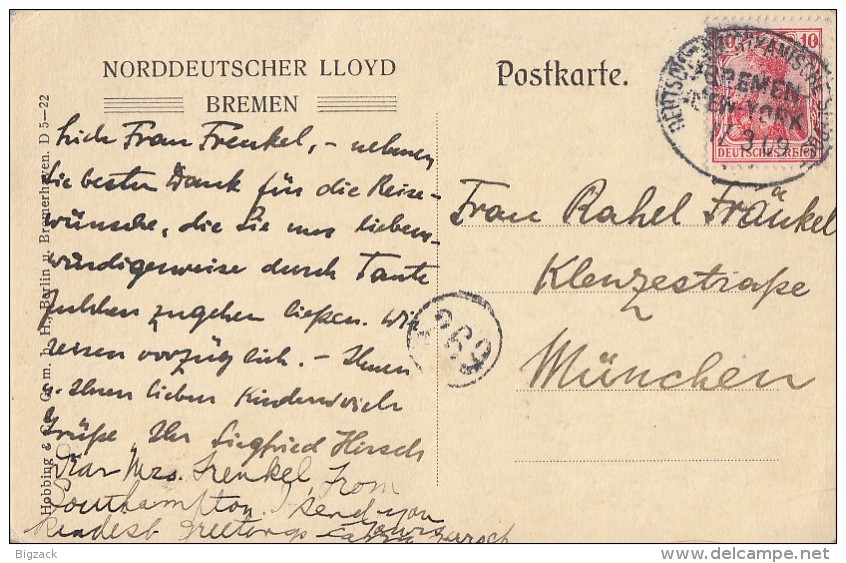 NORDDEUTSCHER LLOYD
BREMEN
Postkarte.
10 10
DEUTSCHES REICH
BREMEN
NEW-YORK
3 09
Hobbing & Co. G. m. b. H., Berlin u. Bremerhaven. D 5—22
Frau Frenkel, – nehmen
Sie besten Dank für die Reise-
wünsche, die Sie uns liebens-
würdigerweise durch Tante
zugehen ließen. Wir
reisen vorzüglich. – Ihnen
u. Ihren lieben Kindern viele
Grüße, Ihr Siegfried Hirsch
Dear Mrs. Frenkel, From
Southampton I send you
kindest greetings
Hirsch
Frau Rahel Fränkel
Klenzestraße
2
München
269
Bigzack
delcampe.net